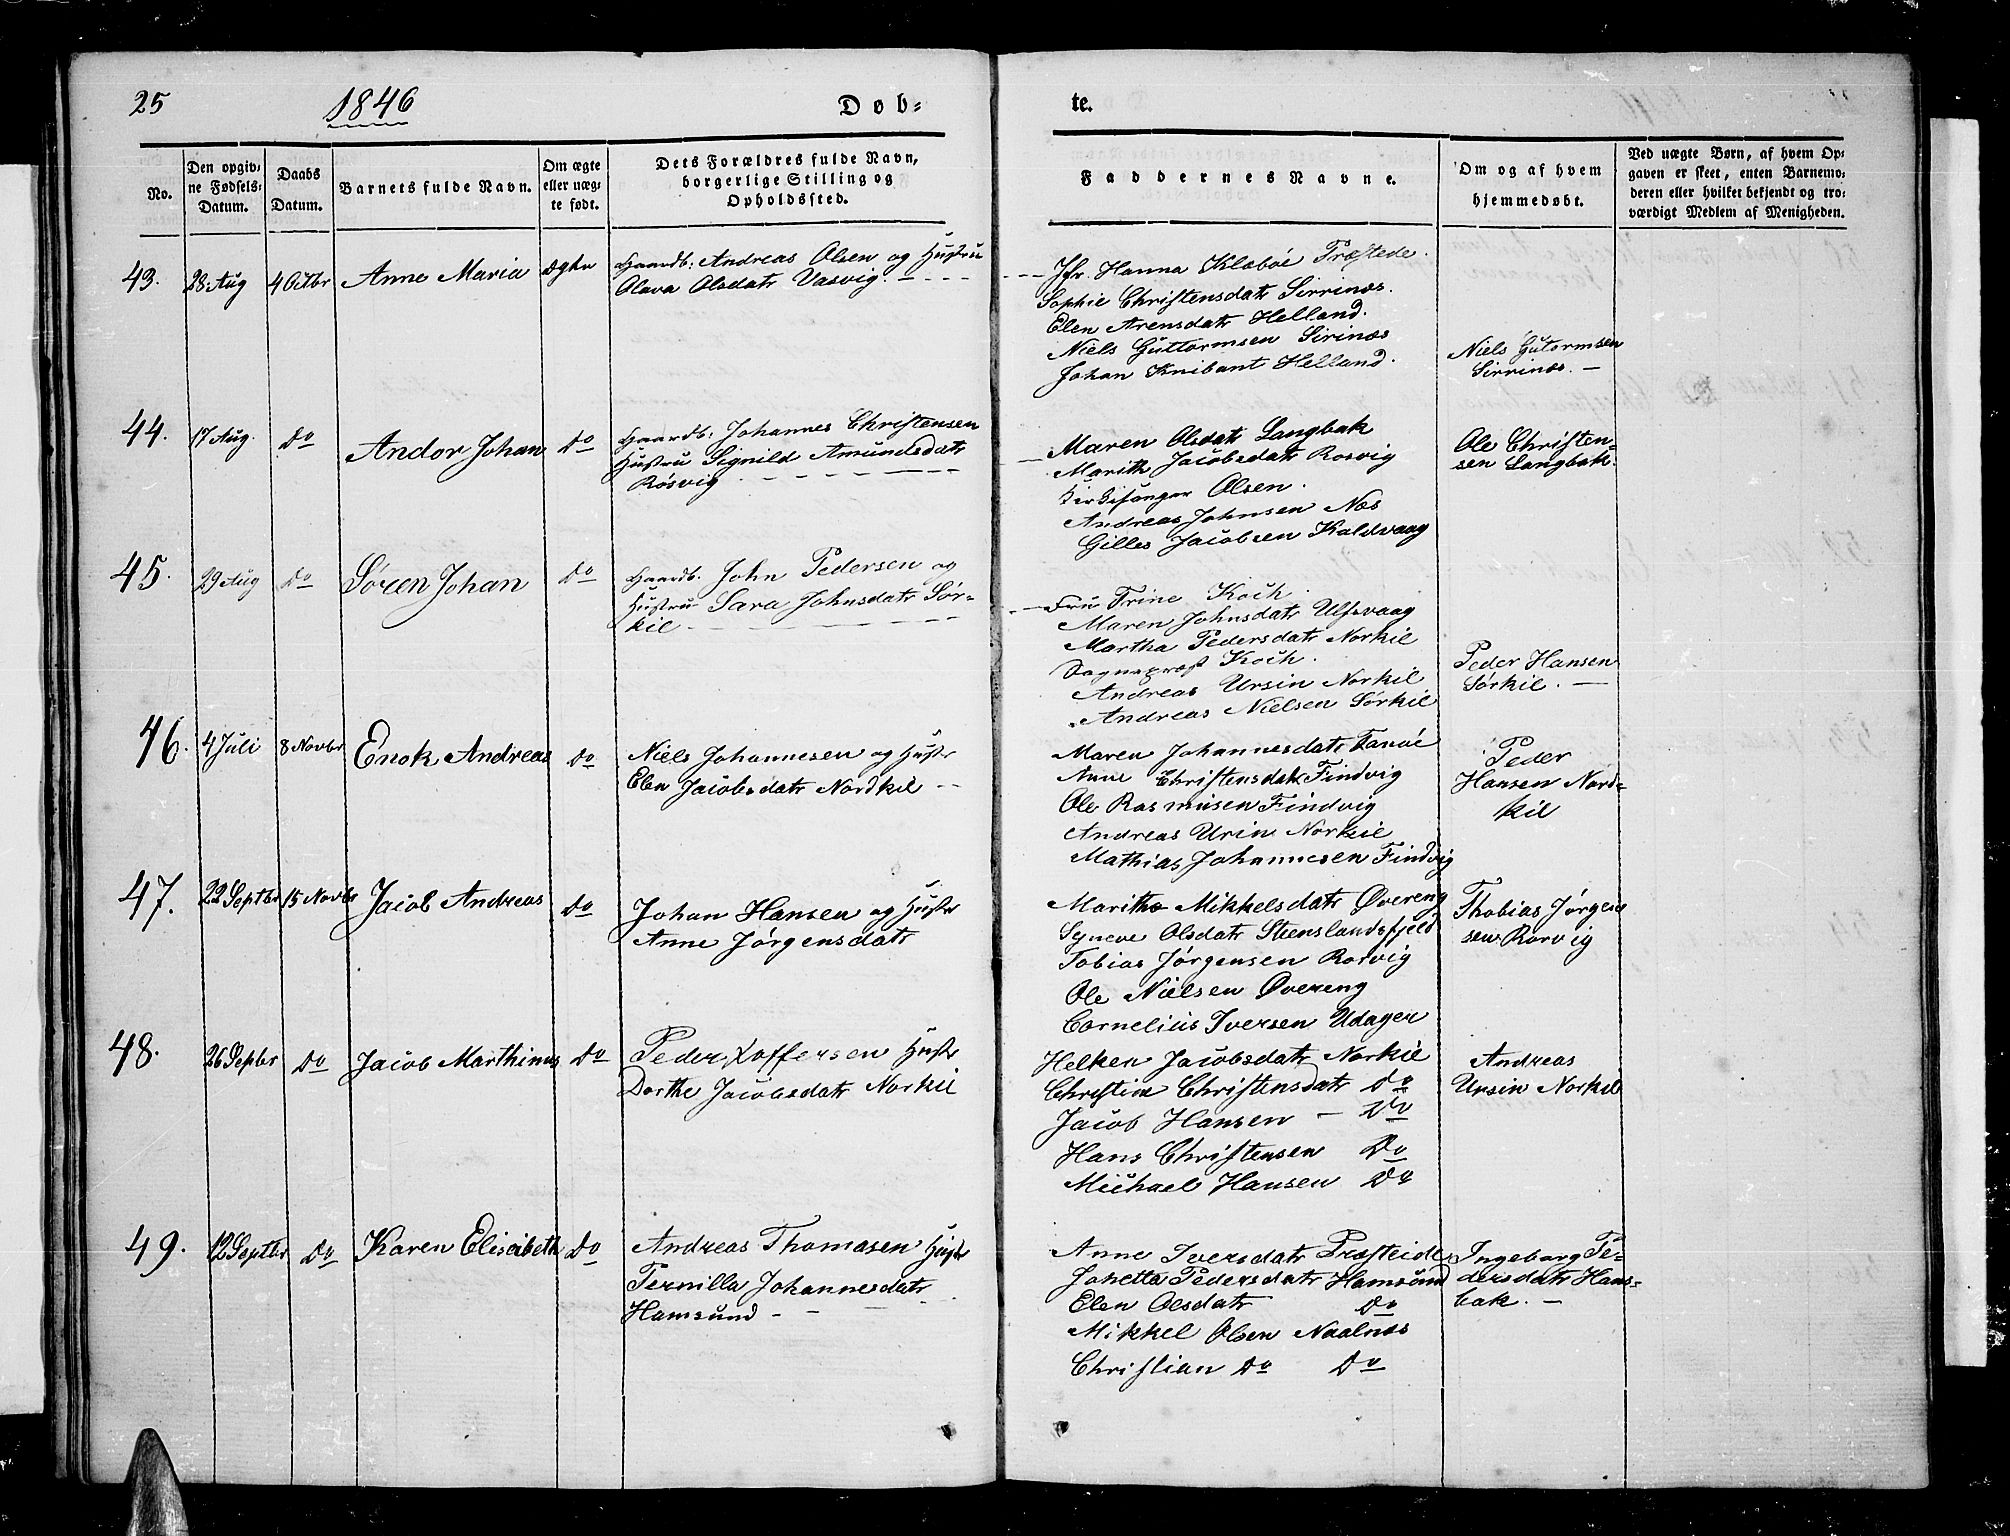 25 1846 Døb-
te.
No.
Den opgiv-
ne Fødsels-
Datum.
Daabs
Datum.
Barnets fulde Navn.
Om ægte
eller uæg-
te født.
Dets Forældres fulde Navn,
borgerlige Stilling og
Opholdssted.
Faddernes Navne.
Om og af hvem
hjemmedøbt.
Ved uægte Børn, af hvem Op-
gaven er skeet, enten Barnemo-
deren eller hvilket bekjendt og tro-
værdigt Medlem af Menigheden.
43. 28 Aug 4 Octbr Anne Maria ægte
Haandb: Andreas Olsen og Hustru
Olava Olsdatr Vasvig.
Jfr. Hanna Klæboe Præstede.
Sophie Christensdatr Sirrinæs.
Elen Arensdatr Helland.
Niels Guttormsen Sirinæs
Johan Knibant Helland.
Niels Gutormsen
Sirrinæs. —
44. 17 Aug. Do Andor Johan Do
Haandb: Johannes Christensen
Hustru Signild Amundsdatr
Rosvig
Maren Olsdatr Langbak
Marith Jacobsdatr Rosvig
Kirkesanger Olsen.
Andreas Johnsen Næs
Gilles Jacobsen Kaldvaag
Ole Christen-
sen Langbak.
45. 29 Aug Do Søren Johan Do
Haandb. John Pedersen og
Hustru Sara Johnsdatr Sør-
kil
Fru Trine Koch.
Maren Johnsdatr Ulfsvaag
Martha Pedersdatr Norkil
Sognepræst Koch.
Andreas Ursin Norkil
Andreas Nielsen Sørkil
Peder Hansen
Sørkil. —
46. 4 Juli 8 Novbr Enok Andreas Do
Niels Johannesen og Hustr
Elen Jacobsdatr Nordkil
Maren Johannesdatr Tanøe
Anne Christensdatr Findvig
Ole Rasmusen Findvig
Andreas Urin Norkil
Mathias Johannesen Findvig
Peder
Hansen Nord-
kil
47. 22 Septbr 15 Novbr Jacob Andreas Do
Johan Hansen og Hustr
Anne Jørgensdatr
Marithe Mikkelsdatr Øvereng
Syneve Olsdatr Steenslandsfjeld
Tobias Jørgensen Rorvig
Ole Nielsen Øvereng
Cornelius Iversen Udager
Thobias Jørgen
sen Rorvig
48. 26 Sepbr Do Jacob Marthinus Do
Peder Koffersen Hustr
Dorthe Jacobsdatr Norkil
Helken Jacobsdatr Norkil
Christine Christensdatr Do
Jacob Hansen — Do
Hans Christensen Do
Michael Hansen Do
Andreas
Ursin Norkil
49. 12 Septbr Do Karen Eliseibeth Do
Andreas Thomasen Hustr
Pernilla Johannesdatr
Hamsund
Anne Iversdatr Præsteide
Johetta Pedersdatr Hamsund
Elen Olsdatr Do
Mikkel Olsen Naalnæs
Christian Do Do
Ingeborg Pe-
dersdatr Hans-
bak. —